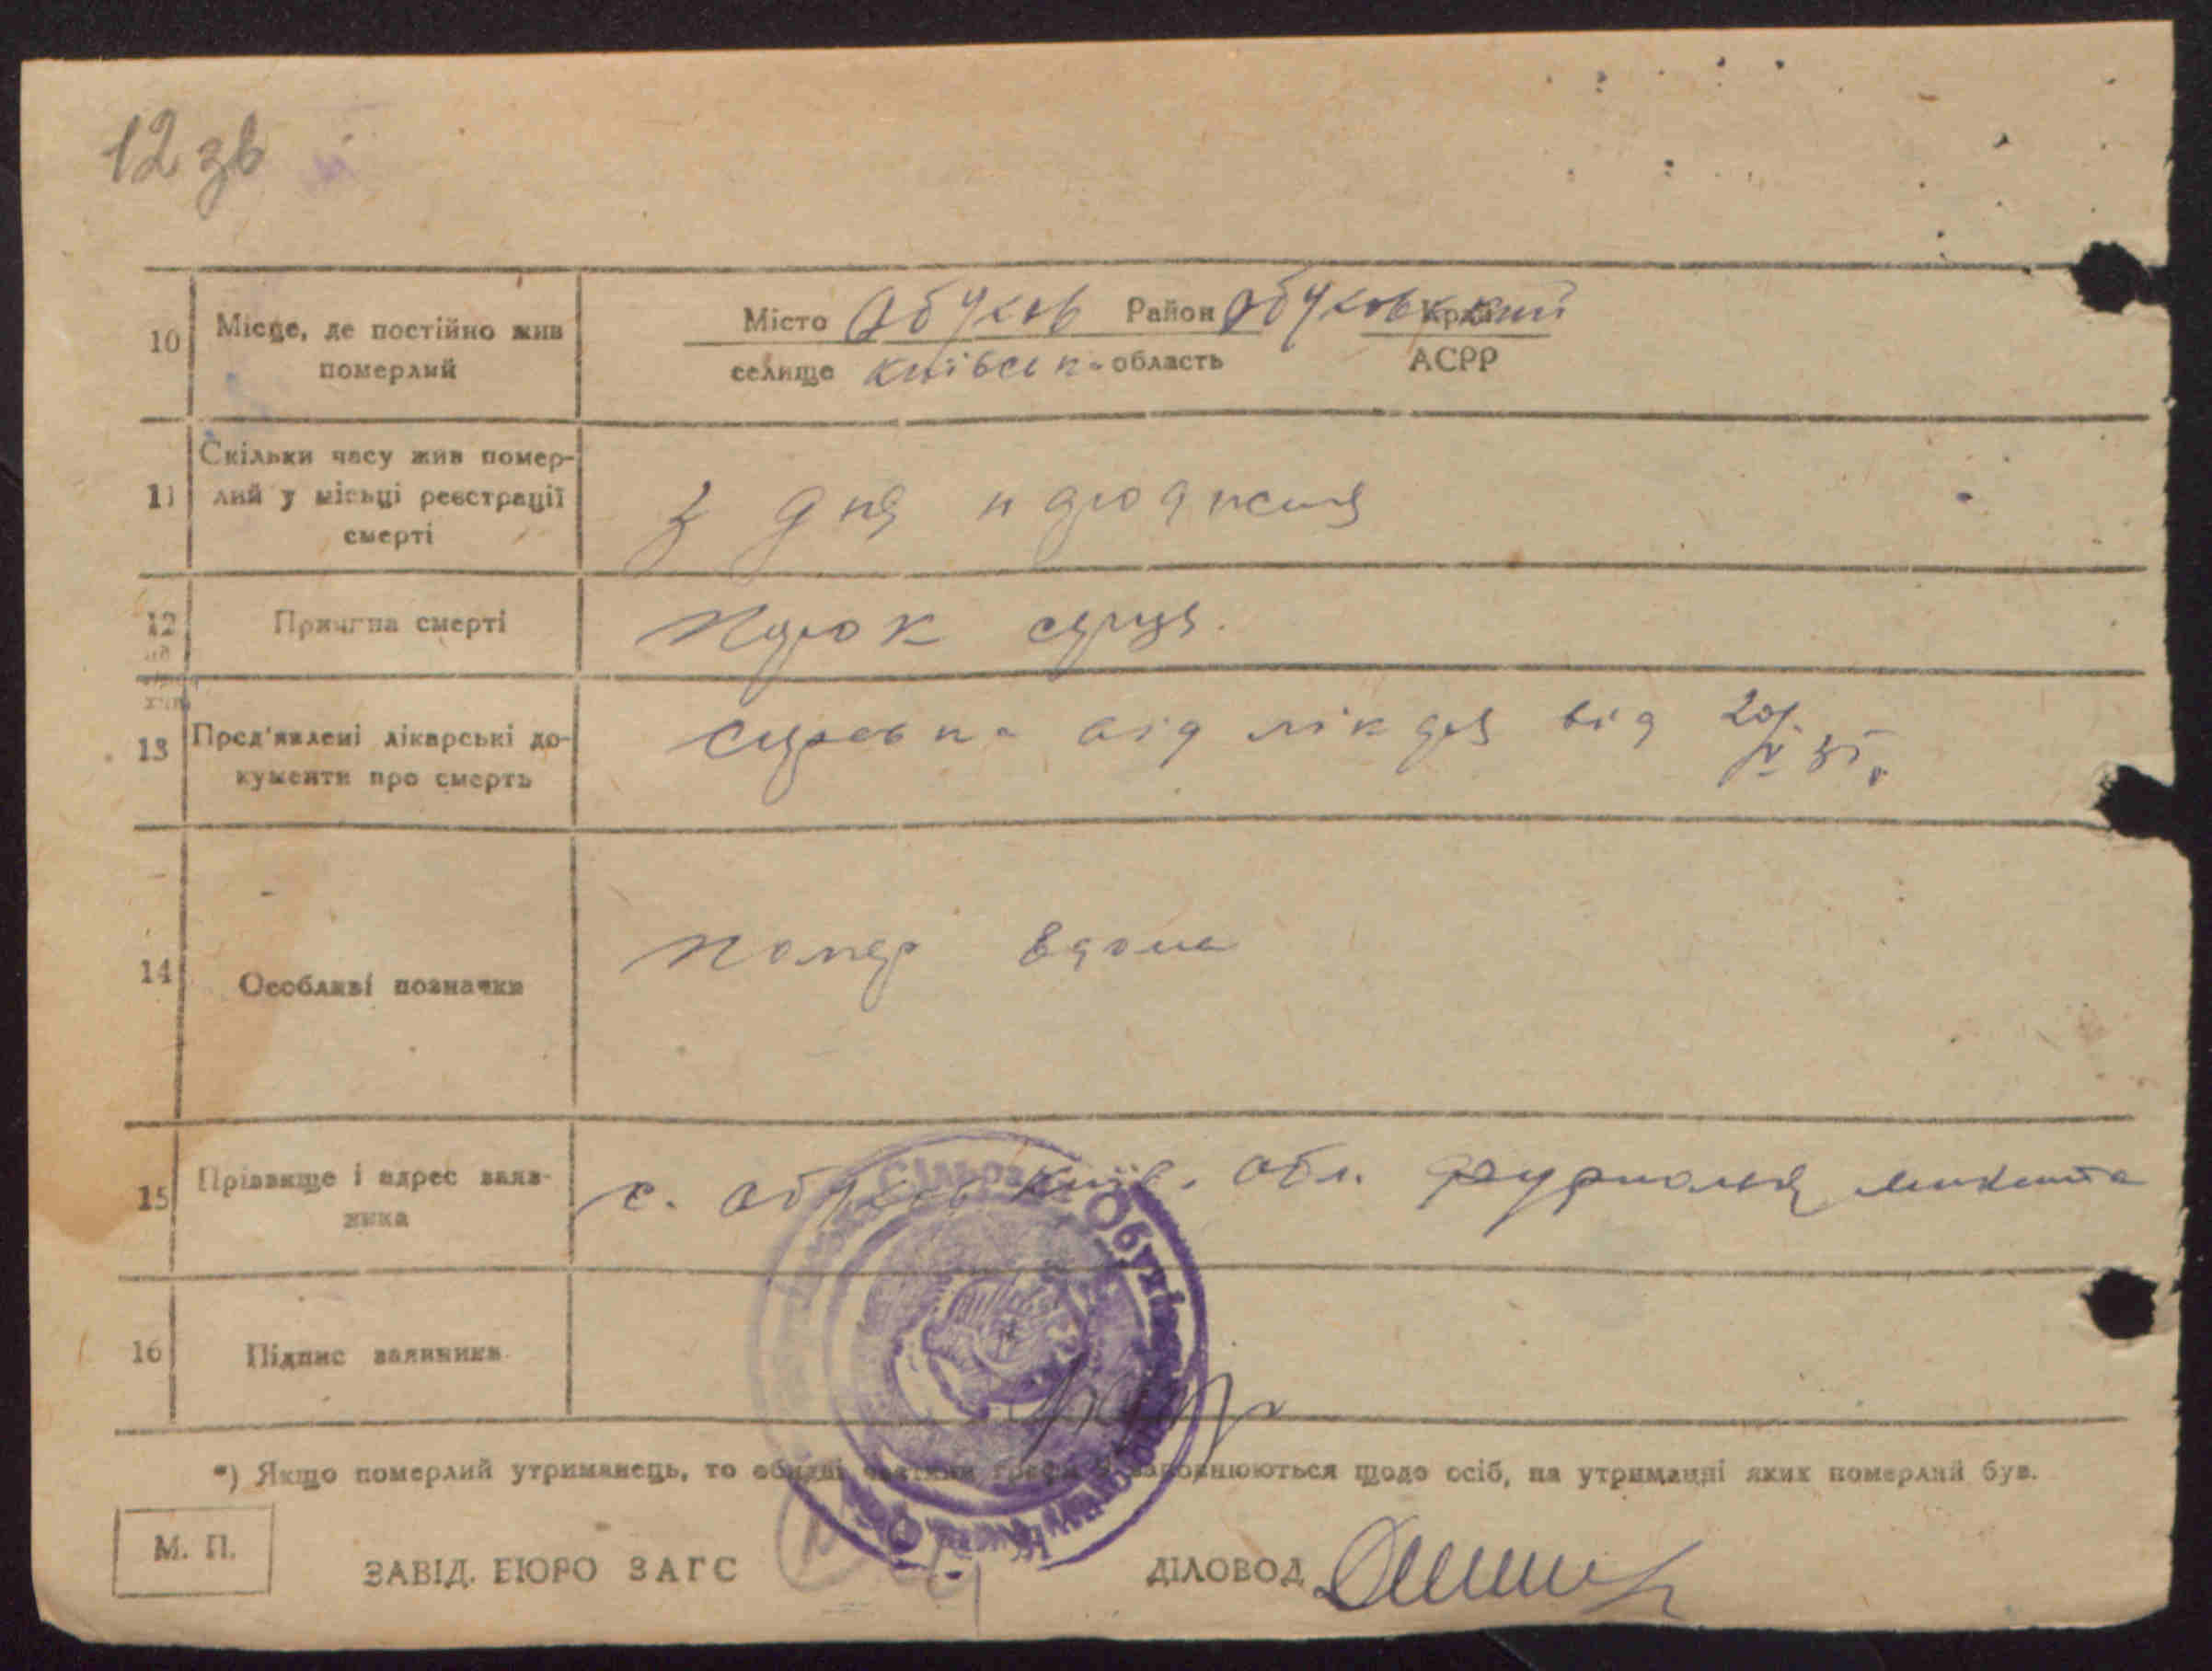 12 зв
10 Місце, де постійно жив померлий
Місто Обухов Район Обуховский Край
селище київськ. область АСРР
11 Скільки часу жив помер-
лий у місьці реєстрації
смерті
з дня народження
12 Причина смерті
Порок серця.
13 Пред'явлені лікарські до-
кументи про смерть
справка від лікаря від 20/IV 35 р.
14 Особливі позначки
помер вдома
15 Прізвище і адрес заяв-
ника
с. Обухов Київ. обл. микита
16 Підпис заявника
*) Якщо померлий утриманець, то обидві частини графи заповнюються щодо осіб, на утриманні яких померлий був.
М. П.
ЗАВІД. БЮРО ЗАГС ДІЛОВОД